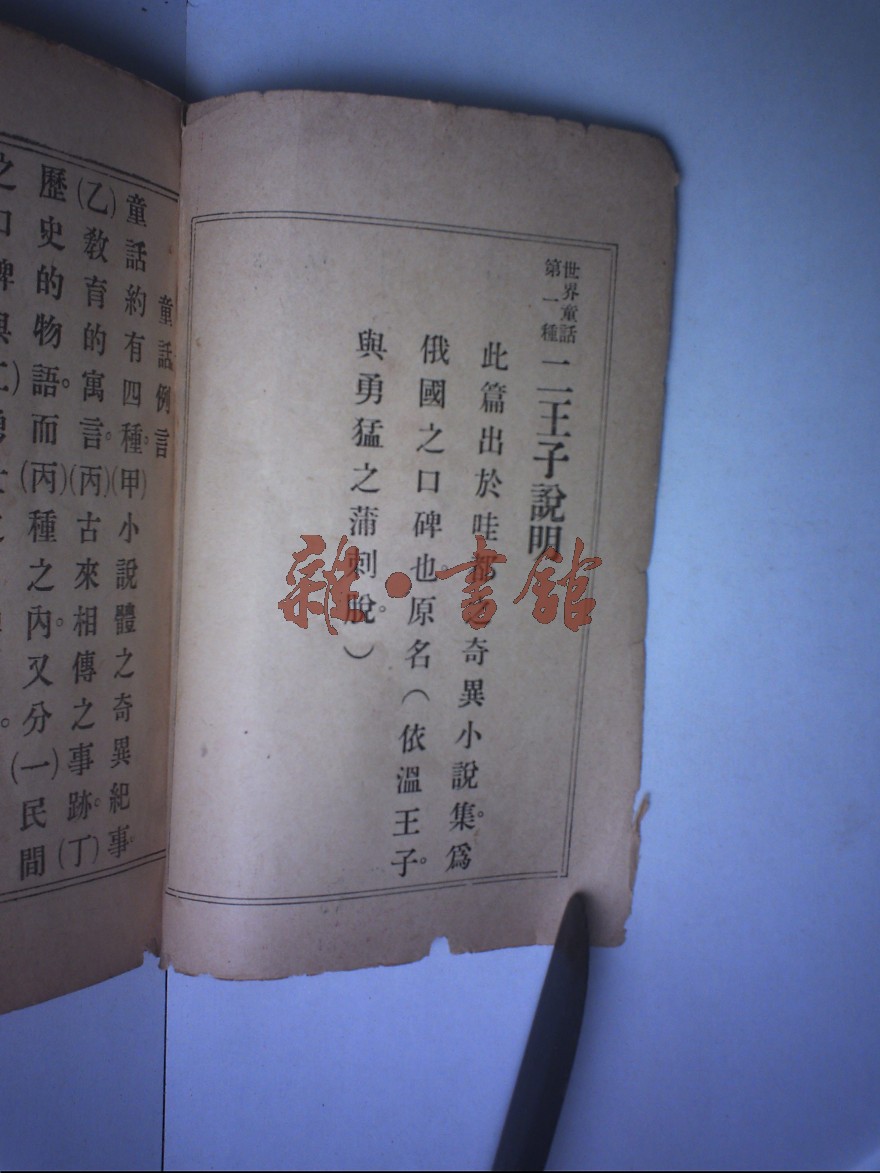 世界童話
第一種
二王子說明
此篇出於哇都之奇異小說集。爲
俄國之口碑也。原名（依溫王子。
與勇猛之蒲刺脫。）
童話例言
童話約有四種。(甲)小說體之奇異紀事。
(乙)敎育的寓言。(丙)古來相傳之事跡。(丁)
歷史的物語。而(丙)種之內。又分(一)民間
雜·書館